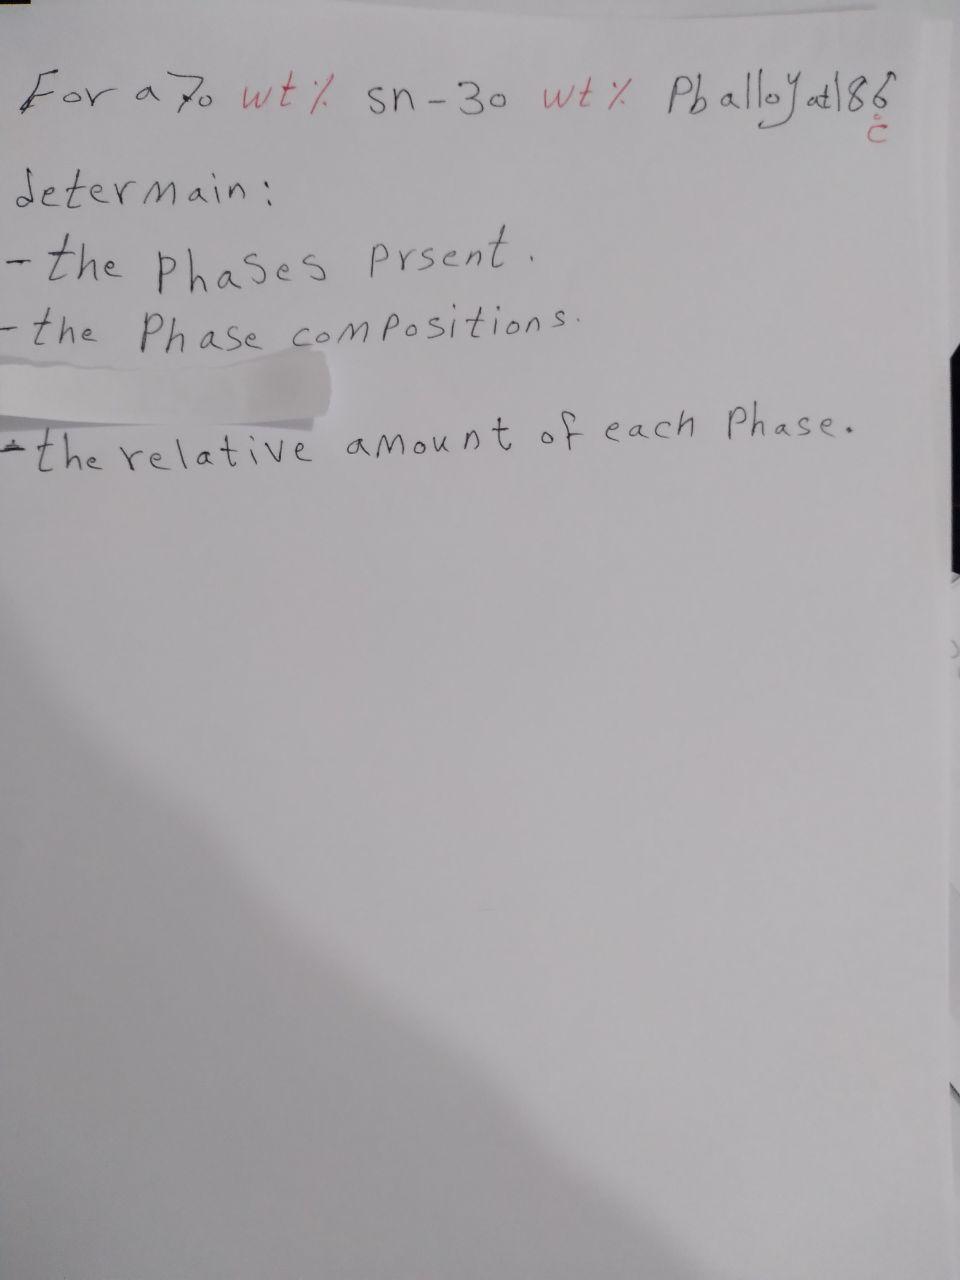 For a 70 wt% sn-30 wt% Pb alloy at 186 °C
determain:
- the phases prsent.
- the Phase comPositions.
- the relative amount of each Phase.